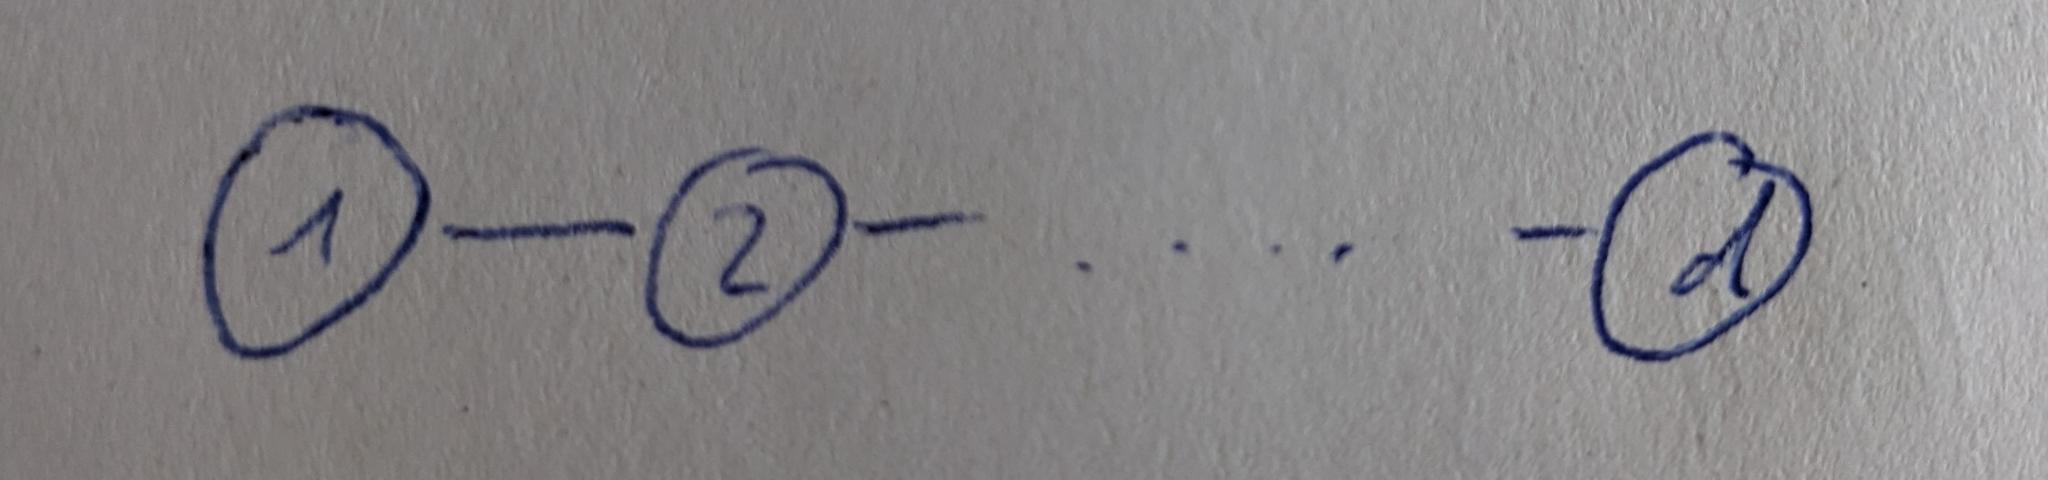 1 — 2 — .... — d